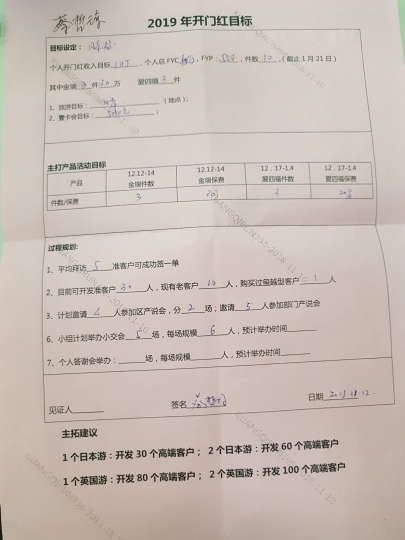 2019 年开门红目标
目标设定：
个人开门红收入目标 10万 ，个人总 FYC ，FYP： ，件数 10 ，（截止 1 月 21 日）
其中金瑞 3 件 20 万 爱四福 3 件
1、旅游目标： （地点）；
2、壹卡会目标： ；
主打产品活动目标
产品 12.12-14 金瑞件数 12.12-14 金瑞保费 12．17-1.4 爱四福件数 12．17-1.4 爱四福保费
件数/保费 3 20万 3
过程规划：
1、平均拜访 5 准客户可成功签一单
2、目前可开发准客户 30 人，现有老客户 10 人，购买过玺越型客户 1 人
3、计划邀请 4 人参加区产说会，分 2 场；邀请 5 人参加部门产说会
6、小组计划举办小交会 5 场，每场规模 6 人，预计举办时间
7、个人答谢会举办： 场，每场规模 人，预计举办时间
见证人 签名 日期 2018.12.12
主拓建议
1 个日本游：开发 30 个高端客户； 2 个日本游：开发 60 个高端客户
1 个英国游：开发 80 个高端客户； 2 个英国游：开发 100 个高端客户